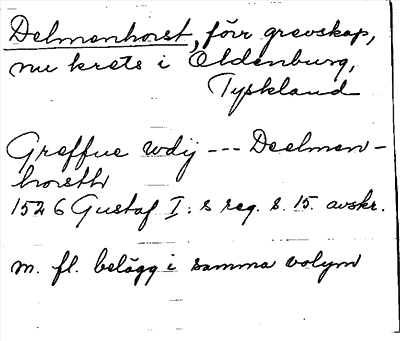 Delmenhorst, förr grevskap,
nu krets i Oldenburg,
Tyskland
Greffue wdij --- Deelmen-
horsth
1526 Gustaf I:s reg. s. 15. avskr.
m. fl. belägg i samma volym